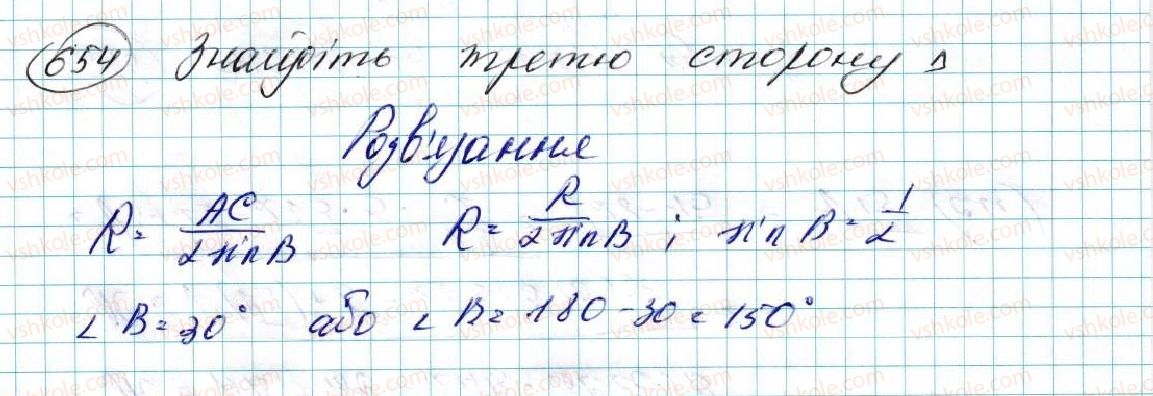 654 Знайдіть третю сторону Δ
Розв'язання
R = AC / 2sin B    R = R / 2sin B ; sin B = 1/2
∠ B = 30° або ∠ B = 180 - 30 = 150°